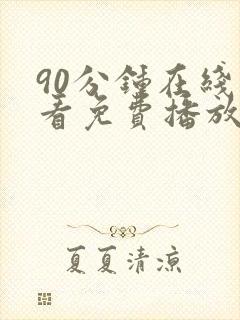 90分鍾在綫
看免費播放
夏夏清涼